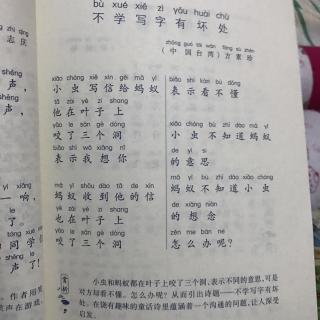 bù xué xiě zì yǒu huài chù
不学写字有坏处
zhōng guó tái wān fāng sù zhēn
（中国台湾）方素珍
xiǎo chóng xiě xìn gěi mǎ yǐ
小虫写信给蚂蚁
tā zài yè zi shang
他在叶子上
yǎo le sān gè dòng
咬了三个洞
biǎo shì wǒ xiǎng nǐ
表示我想你
mǎ yǐ shōu dào tā de xìn
蚂蚁收到他的信
yě zài yè zi shang
也在叶子上
yǎo le sān gè dòng
咬了三个洞
biǎo shì kàn bu dǒng
表示看不懂
xiǎo chóng bù zhī dào mǎ yǐ
小虫不知道蚂蚁
de yì si
的意思
mǎ yǐ bù zhī dào xiǎo chóng
蚂蚁不知道小虫
de xiǎng niàn
的想念
zěn me bàn ne
怎么办呢？
赏析
小虫和蚂蚁都在叶子上咬了三个洞，表示不同的意思，可是
对方却看不懂。怎么办呢？从而引出诗题——不学写字有坏
处。在饶有趣味的童话诗里蕴涵着一个沟通的问题，让人深受
启发。